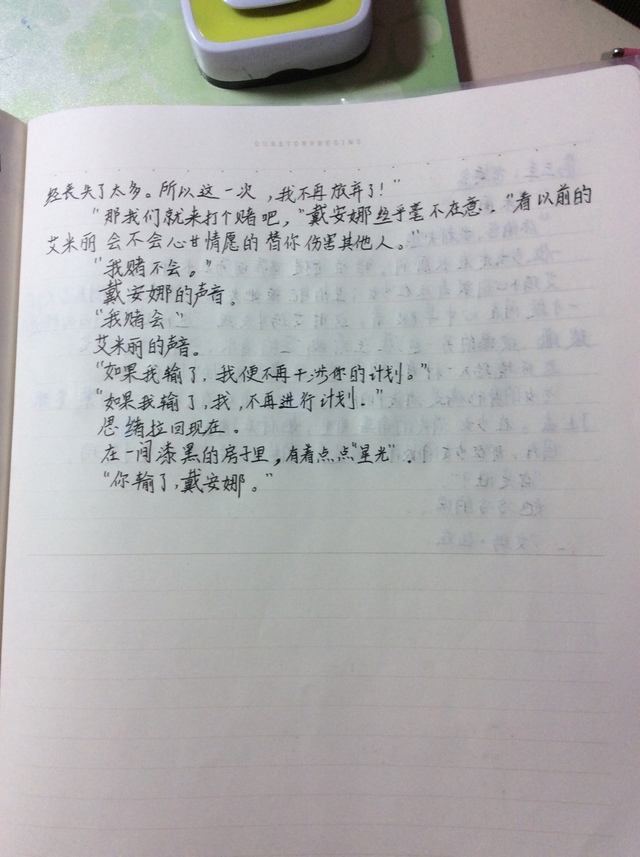 经丧失了太多。所以这一次,我不再放弃了!"
"那我们就来打个赌吧,"戴安娜丝乎毫不在意。"看以前的
艾米丽会不会心甘情愿的替你伤害其他人。"
"我赌不会。"
戴安娜的声音。
"我赌会"
艾米丽的声音。
"如果我输了,我便不再干涉你的计划。"
"如果我输了,我,不再进行计划."
思绪拉回现在。
在一间漆黑的房子里,有着点点"星光".
"你输了,戴安娜。"